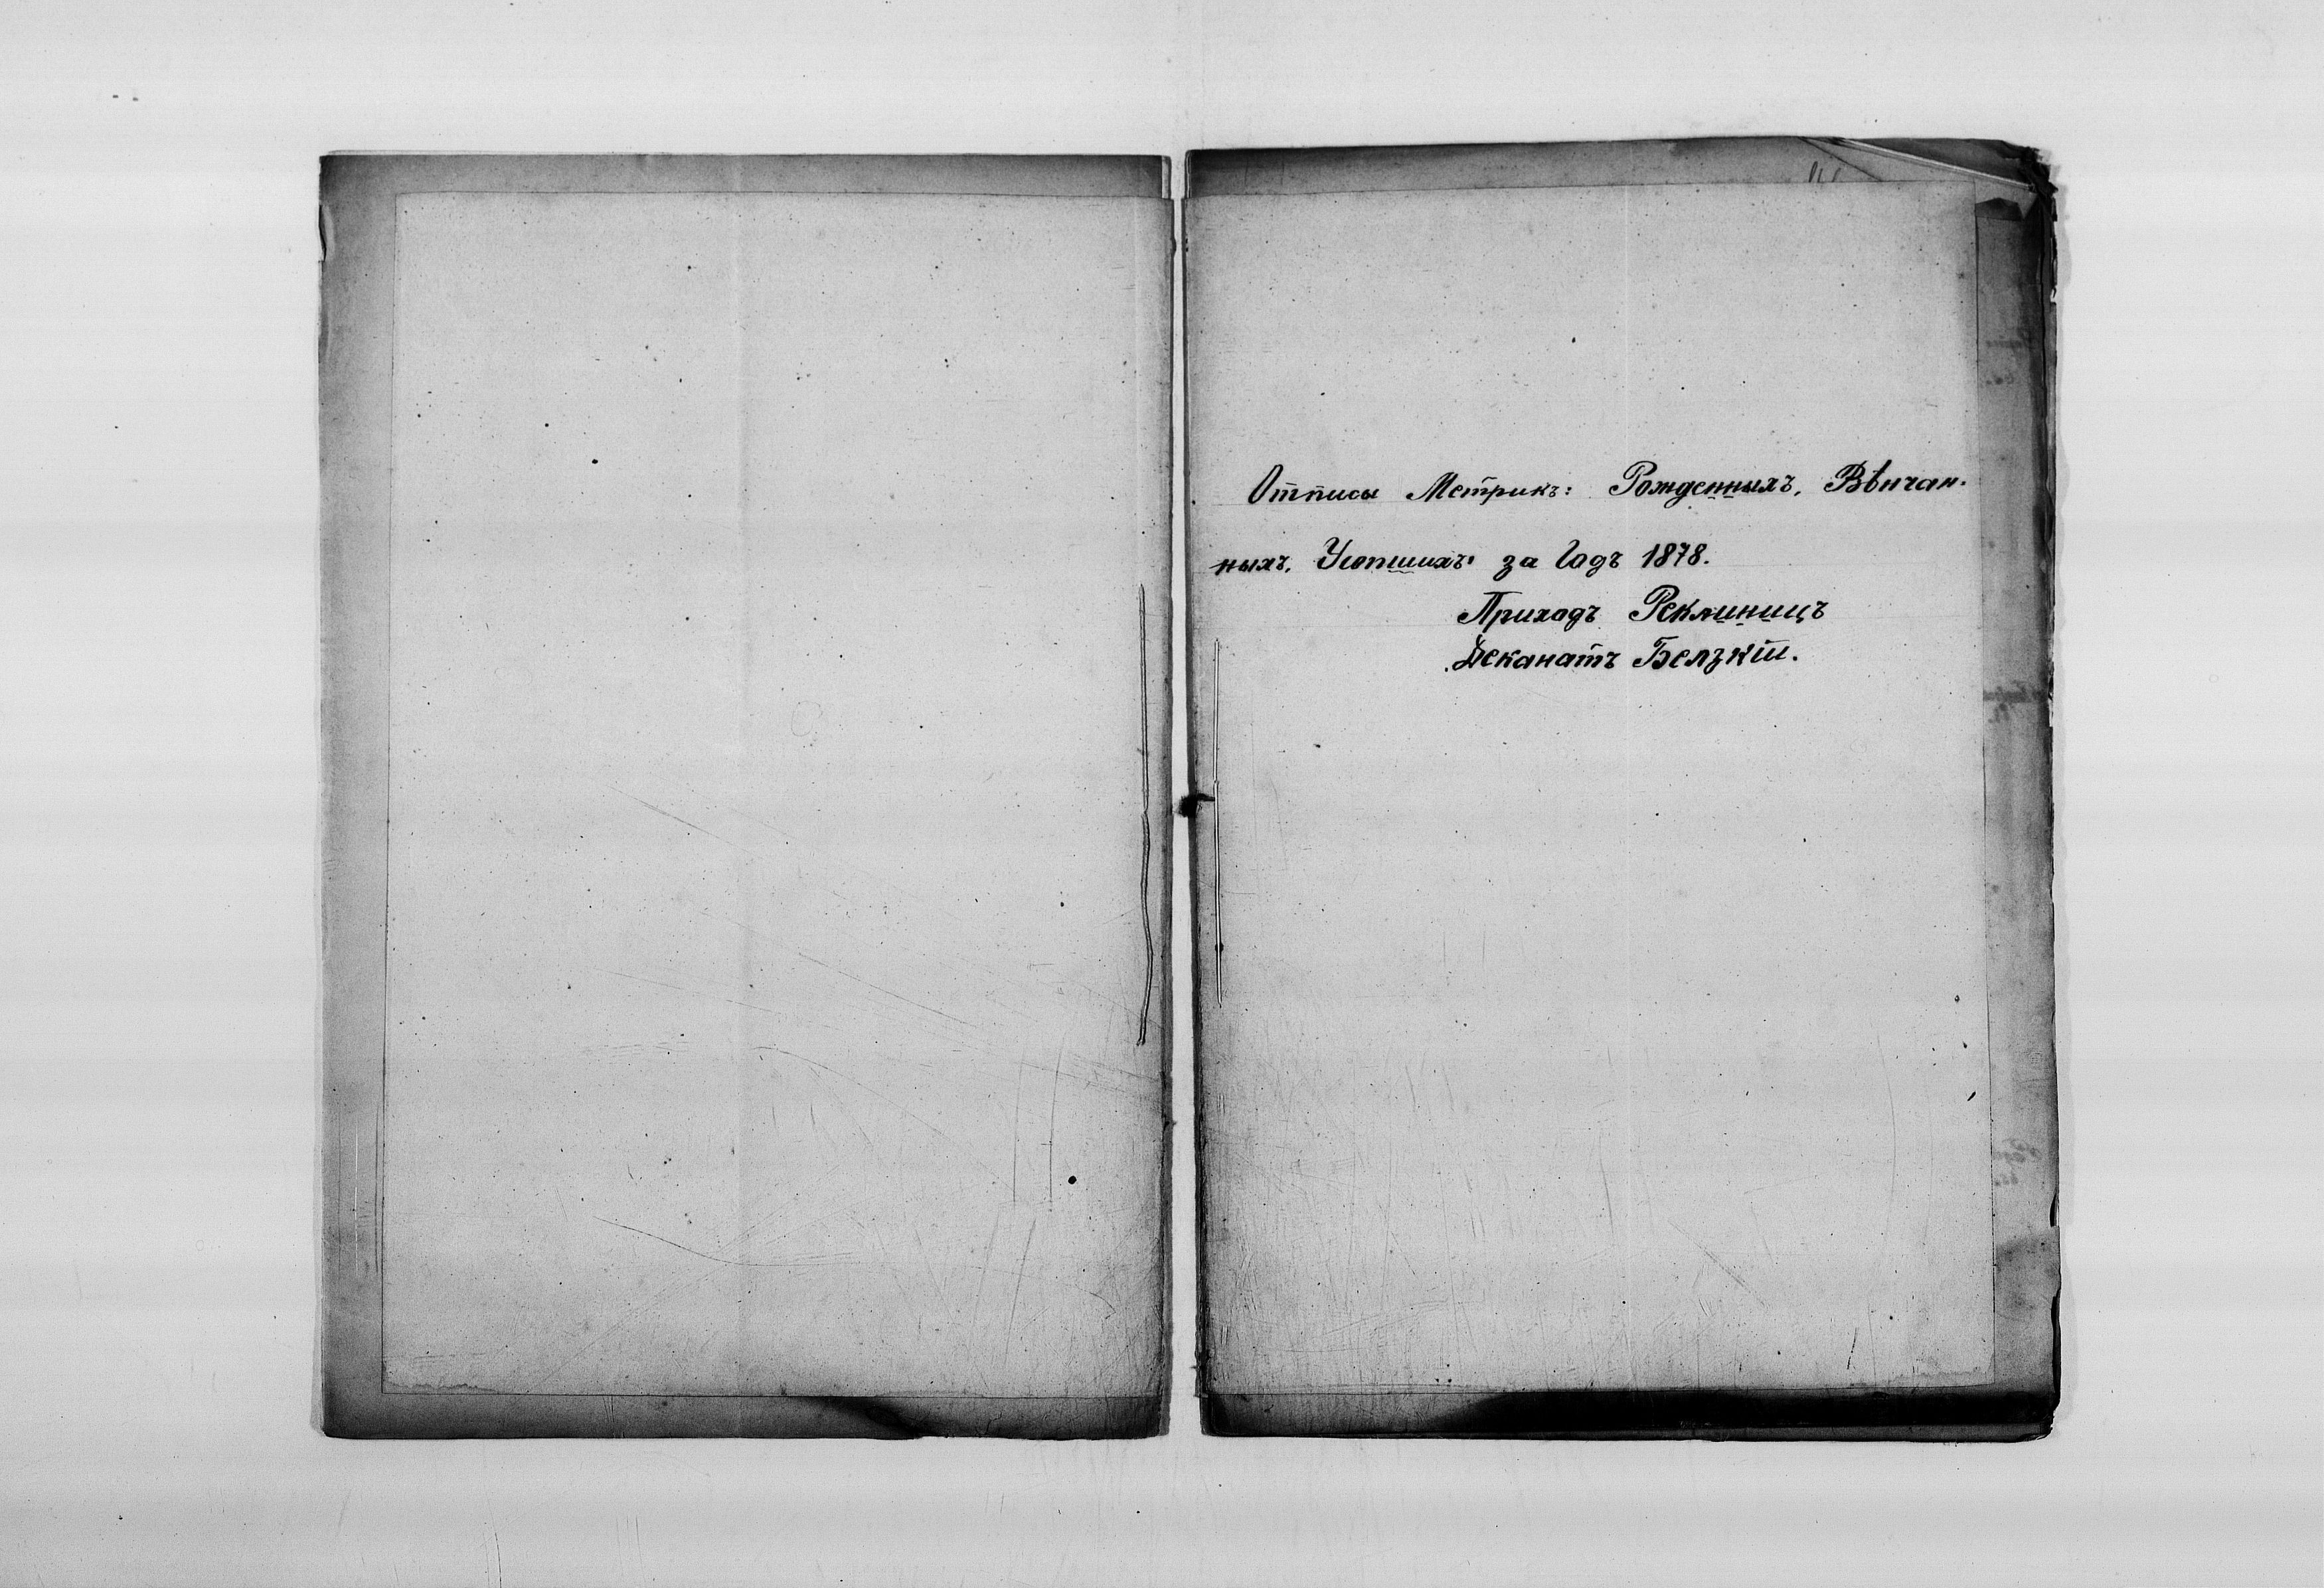 Отписы Метрикъ: Рожденныхъ, Вѣнчан-
ныхъ, Усопшихъ за Годъ 1878.
Приходъ Реклиницъ
Деканатъ Белзкій.